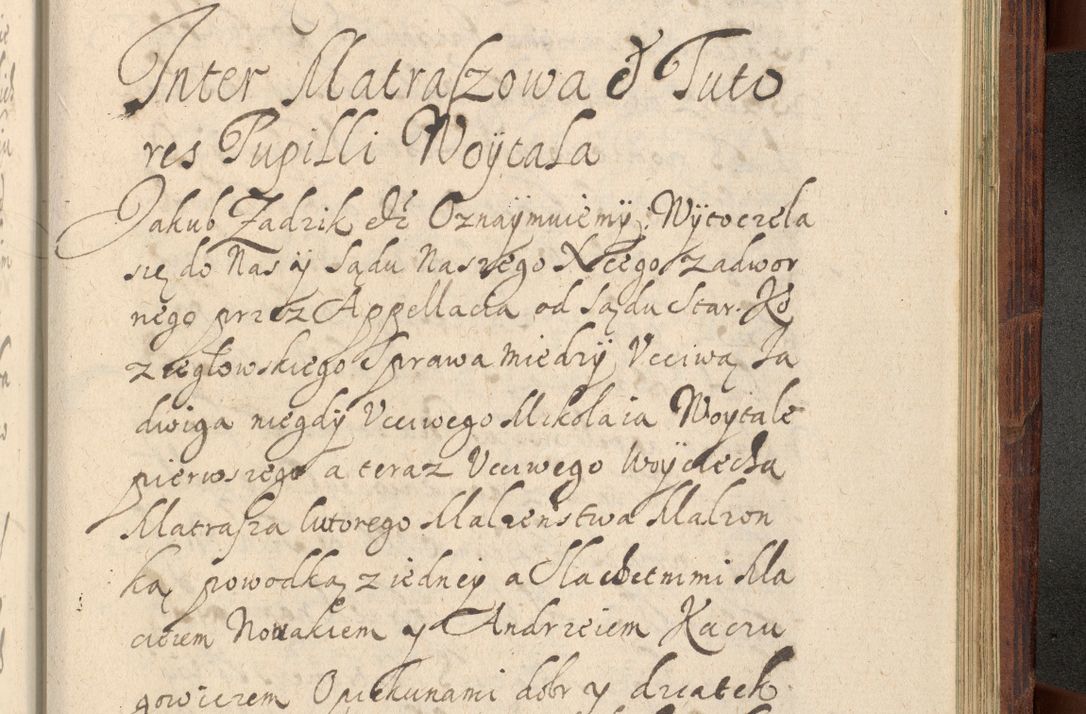 Inter Matraſzowa & Tuto
res Pupilli Woÿtala
Jakub Zadzik &c Oznaÿmuiemÿ: Wÿtoczela
się do Nas ÿ sądu Naszego Xcego zadwor
nego przez Appellacia od Sądu Star. Ko
ziegłowskiego Sprawa miedzÿ Vcciwą Ja
dwiga niegdÿ Vcciwego Mikołaia Woytale
pierwszego a teraz Vcciwego Woÿciecha
Matraſza wtorego Malzenstwa Malzon
ką powodką z iedneÿ a Slachetnimi Ma
cieiem Nowakiem y Andrzeiem Kaczu
gowiczem Opiekunami dobr y dziatek